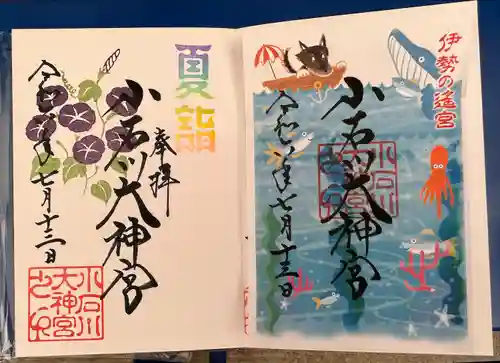 夏詣
奉拝
小石川大神宮
令和六年七月十三日
小石川
大神宮
之印
伊勢の遙宮
小石川大神宮
令和六年七月十三日